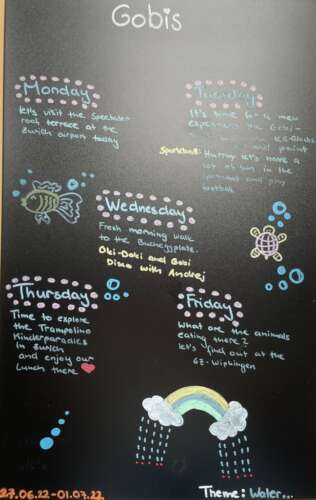 Gobis
Monday
Let's visit the Spectator
roof terrace at the
Zurich airport today
Tuesday
It's time for a new
and paint
Sportsball: Hurray let's have a
of fun in the
and play
football
Wednesday
Fresh morning walk
to the Bucheggplatz.
Oki-Doki and Gobi
Disco with Andrej
Thursday
Time to explore
the Trampolino
Kinderparadies
in Zurich
and enjoy our
Lunch there
Friday
What are the animals
eating there?
let's find out at the
GZ-Wipkingen
27.06.22-01.07.22
Theme: Water...